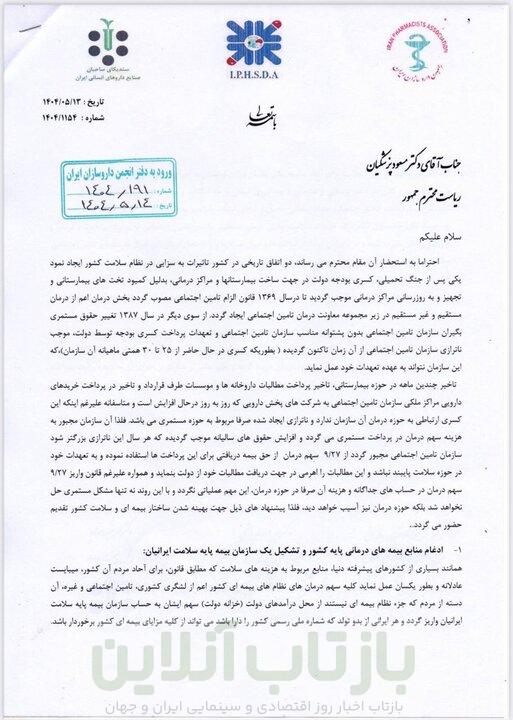 سندیکای صاحبان
صنایع داروهای انسانی ایران
I.P.H.S.D.A
IRAN PHARMACISTS ASSOCIATION
انجمن داروسازان ایران
تاریخ : ۱۴۰۴/۰۵/۱۳
شماره : ۱۴۰۴/۱۱۵۴
باسمه تعالی
جناب آقای دکتر مسعود پزشکیان
ریاست محترم جمهور
ورود به دفتر انجمن داروسازان ایران
شماره : ۱۴۰۴/۱۹۱
تاریخ : ۱۴۰۴/۵/۱۴
سلام علیکم
احتراما به استحضار آن مقام محترم می رساند، دو اتفاق تاریخی در کشور تاثیرات به سزایی در نظام سلامت کشور ایجاد نمود
یکی پس از جنگ تحمیلی، کسری بودجه دولت در جهت ساخت بیمارستانها و مراکز درمانی، بدلیل کمبود تخت های بیمارستانی و
تجهیز و به روزرسانی مراکز درمانی، موجب گردید تا درسال ۱۳۶۹ قانون الزام تامین اجتماعی مصوب گردد بخش درمان اعم از درمان
مستقیم و غیر مستقیم در زیر مجموعه معاونت درمان تامین اجتماعی ایجاد گردد. از سوی دیگر در سال ۱۳۸۷ تغییر حقوق مستمری
بگیران سازمان تامین اجتماعی بدون پشتوانه مناسب سازمان تامین اجتماعی و تعهدات پرداخت کسری بودجه توسط دولت، موجب
ناترازی سازمان تامین اجتماعی از آن زمان تاکنون گردیده ( بطوریکه کسری در حال حاضر از ۲۵ تا ۳۰ همتی ماهیانه آن سازمان)،که
این سازمان نتواند به عهده تعهدات خود عمل نماید.
تاخیر چندین ماهه در حوزه بیمارستانی، تاخیر پرداخت مطالبات داروخانه ها و موسسات طرف قرارداد و تاخیر در پرداخت خریدهای
دارویی مراکز ملکی سازمان تامین اجتماعی به شرکت های پخش دارویی که روز به روز درحال افزایش است و متاسفانه علیرغم اینکه این
کسری ارتباطی به حوزه درمان آن سازمان ندارد و ناترازی ایجاد شده صرفا مربوط به حوزه مستمری می باشد. فلذا آن سازمان مجبور به
هزینه سهم درمان در پرداخت مستمری می گردد و افزایش حقوق های سالیانه موجب گردیده که هر سال این ناترازی بزرگتر شود
سازمان تامین اجتماعی مجبور گردد از ۹/۲۷ سهم درمان از حق بیمه دریافتی برای این پرداخت ها استفاده نموده و به تعهدات خود
در حوزه سلامت پایبند نباشد و این مطالبات را اهرمی در جهت دریافت مطالبات خود از دولت بنماید و همواره علیرغم قانون واریز ۹/۲۷
سهم درمان در حساب های جداگانه و هزینه آن صرفا در حوزه درمان، این مهم عملیاتی نگردد و با این روند نه تنها مشکل مستمری حل
نخواهد شد بلکه حوزه درمان نیز آسیب خواهد دید، فلذا پیشنهاد های ذیل جهت بهینه شدن ساختار بیمه ای و سلامت کشور تقدیم
حضور می گردد..
۱- ادغام منابع بیمه های درمانی پایه کشور و تشکیل یک سازمان بیمه پایه سلامت ایرانیان:
همانند بسیاری از کشورهای پیشرفته دنیا، منابع مربوط به هزینه های سلامت که مطابق قانون، برای آحاد مردم آن کشور، میبایست
عادلانه و بطور یکسان عمل نماید کلیه سهم درمان های نظام های بیمه ای کشور اعم از لشگری کشوری، تامین اجتماعی و غیره، آن
دسته از مردم که جزء نظام بیمه ای نیستند از محل درآمدهای دولت (خزانه دولت) سهم ایشان به حساب سازمان بیمه پایه سلامت
ایرانیان واریز گردد و هر ایرانی از بدو تولد که شماره ملی رسمی کشور را دارا باشد می تواند از کلیه مزایای بیمه ای کشور برخوردار باشد.
بازتاب آنلاین
بازتاب اخبار روز اقتصادی و سینمایی ایران و جهان